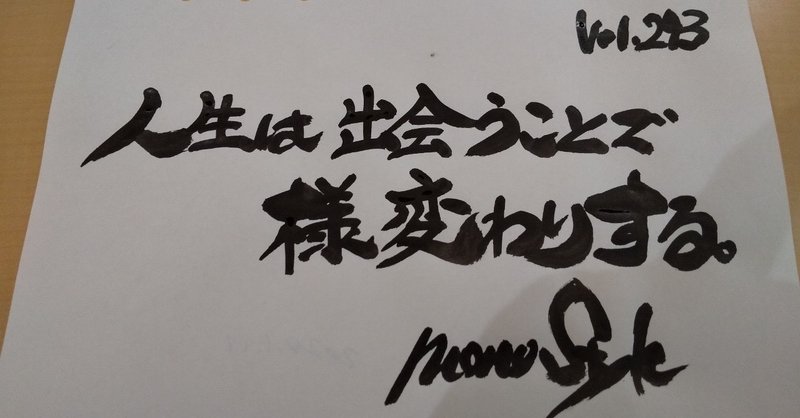 Vol.293
人生は出会うことで
様変わりする。